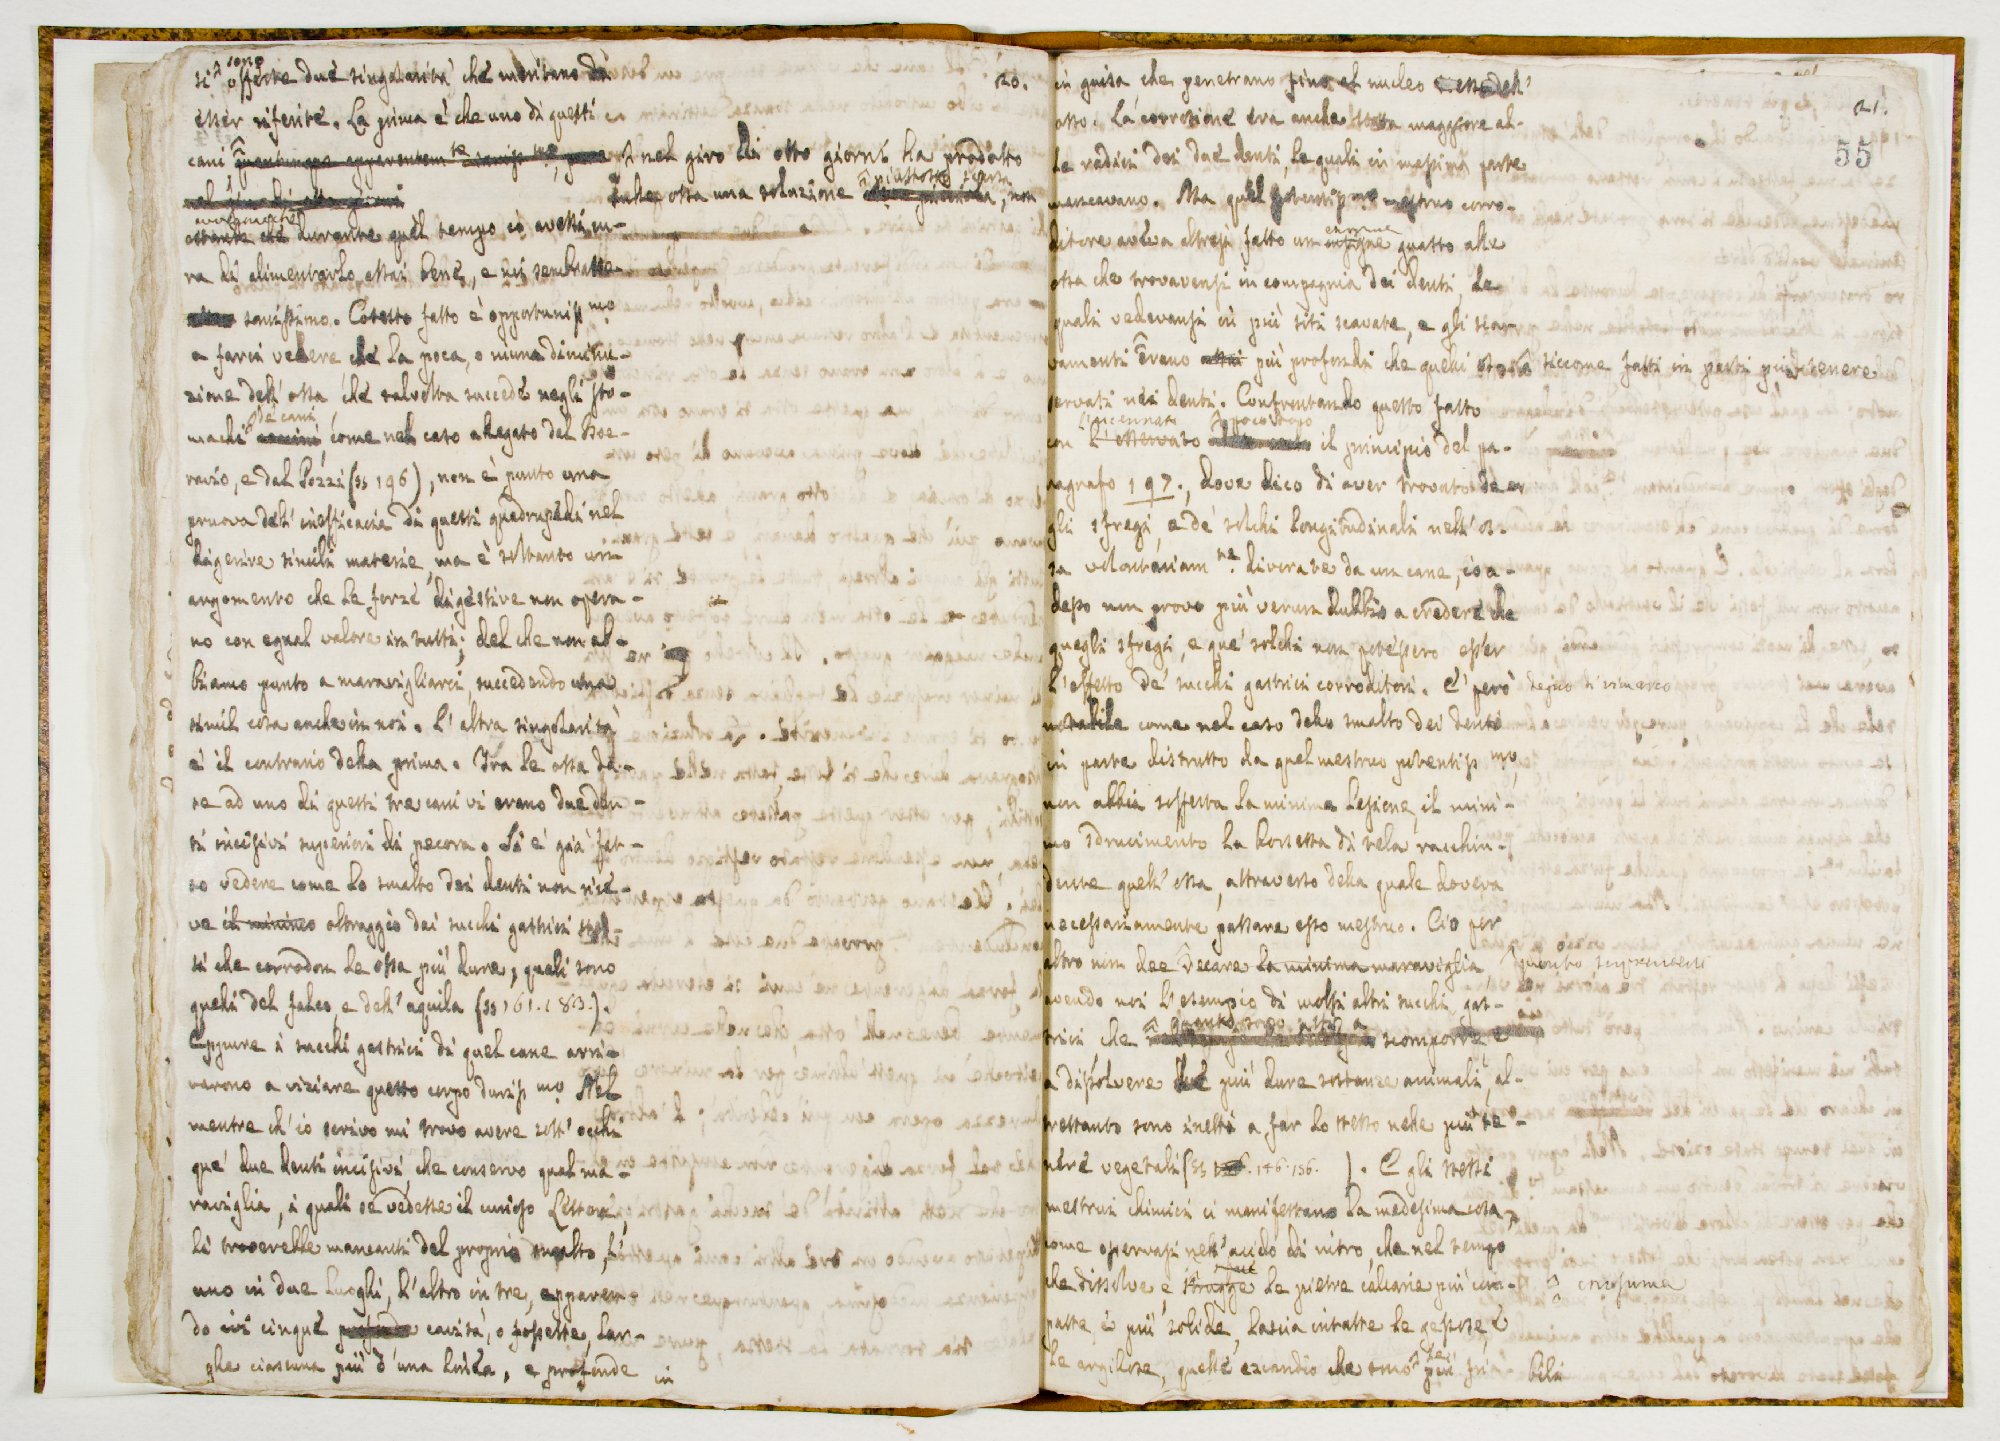 si sono offerte due singolarità che meritano di
20.
esser riferite. La prima è che uno di questi
cani nel giro di otto giorni ha prodotto
nelle ossa una soluzione piuttosto scarsa, non
durante quel tempo io avessi cu-
ra di alimentarlo assai bene, e mi sembrasse
sanissimo. Cotesto fatto è opportuniss.mo
a farci vedere che la poca, o niuna diminu-
zione dell' ossa che talvolta succede negli sto-
machi de' cani, come nel caso allegato del Boe-
ravio, e dal Pozzi (§§ 196), non è punto una
pruova dell' inefficacia di questi quadrupedi nel
digerire simili materie, ma è soltanto un
argomento che le forze digestive non opera-
no con egual valore in tutti; del che non ab-
biamo punto a maravigliarci, succedendo una
simil cosa anche in noi. L' altra singolarità
è il contrario della prima. Tra le ossa da-
te ad uno di questi tre cani vi erano due den-
ti incisivi superiori di pecora. Si è già fat-
to vedere come lo smalto dei denti non rice-
ve il minimo oltraggio dai succhi gastrici stes-
si che corrodon le ossa più dure, quali sono
quelli del falco, e dell' aquila (§§ 161. 183.).
Eppure i succhi gastrici di quel cane arri-
varono a viziare questo corpo duriss.mo Nel
mentre ch' io scrivo mi trovo avere sott' occhi
que' due denti incisivi, che conservo qual ma-
raviglia, i quali se vedesse il curioso Lettore,
li troverebbe mancanti del proprio smalto, l'
uno in due luoghi, l' altro in tre, apparen-
do ivi cinque cavità, o fossette, lar-
ghe ciascuna più d' una linea, e profonde
in
in guisa che penetrano fino al nucleo dell'
21.
55
osso. La corrosione era anche maggiore al-
le radici dei due denti, le quali in massima parte
mancavano. Ma quel potentiss.mo mestruo corro-
ditore aveva altresì fatto un enorme guasto alle
ossa che trovavansi in compagnia dei denti, le
quali vedevansi in più siti scavate, e gli sca-
vamenti erano più profondi che quelli os- siccome fatti in parti più tenere
servati nei denti. Confrontando questo fatto
con l' accennato poco dopo il principio del pa-
ragrafo 197., dove dico di aver trovato de-
gli sfregi, e de' solchi longitudinali nell' os-
sa volontariam.te divorate da un cane, io a-
desso non provo più verun dubbio a credere che
quegli sfregi, e que' solchi non potessero esser
l' effetto de' succhi gastrici corroditori. E' però degno di rimarco
notabile come nel caso dello smalto dei denti
in parte distrutto da quel mestruo potentiss.mo,
non abbia sofferta la minima lesione, il mini-
mo sdrucimento la borsetta di tela racchiu-
dente quell' ossa, attraverso della quale doveva
necessariamente passare esso mestruo. Ciò per
altro non dee recare la minima maraviglia,
avendo noi l' esempio di molti altri succhi gas-
trici che quanto sono atti a scomporre e
a dissolvere le più dure sostanze animali, al-
trettanto sono inetti a far lo stesso nelle più te-
nere vegetali (§§ 146. 156. ). E gli stessi
mestrui chimici ci manifestano la medesima cosa,
come osservasi nell' acido di nitro, che nel tempo
che dissolve, e strugge le pietre calcarie più com- consuma
patte, e più solide, lascia intatte le gessose, e
le argillose, quelle eziandio che sono le più fri-
bili